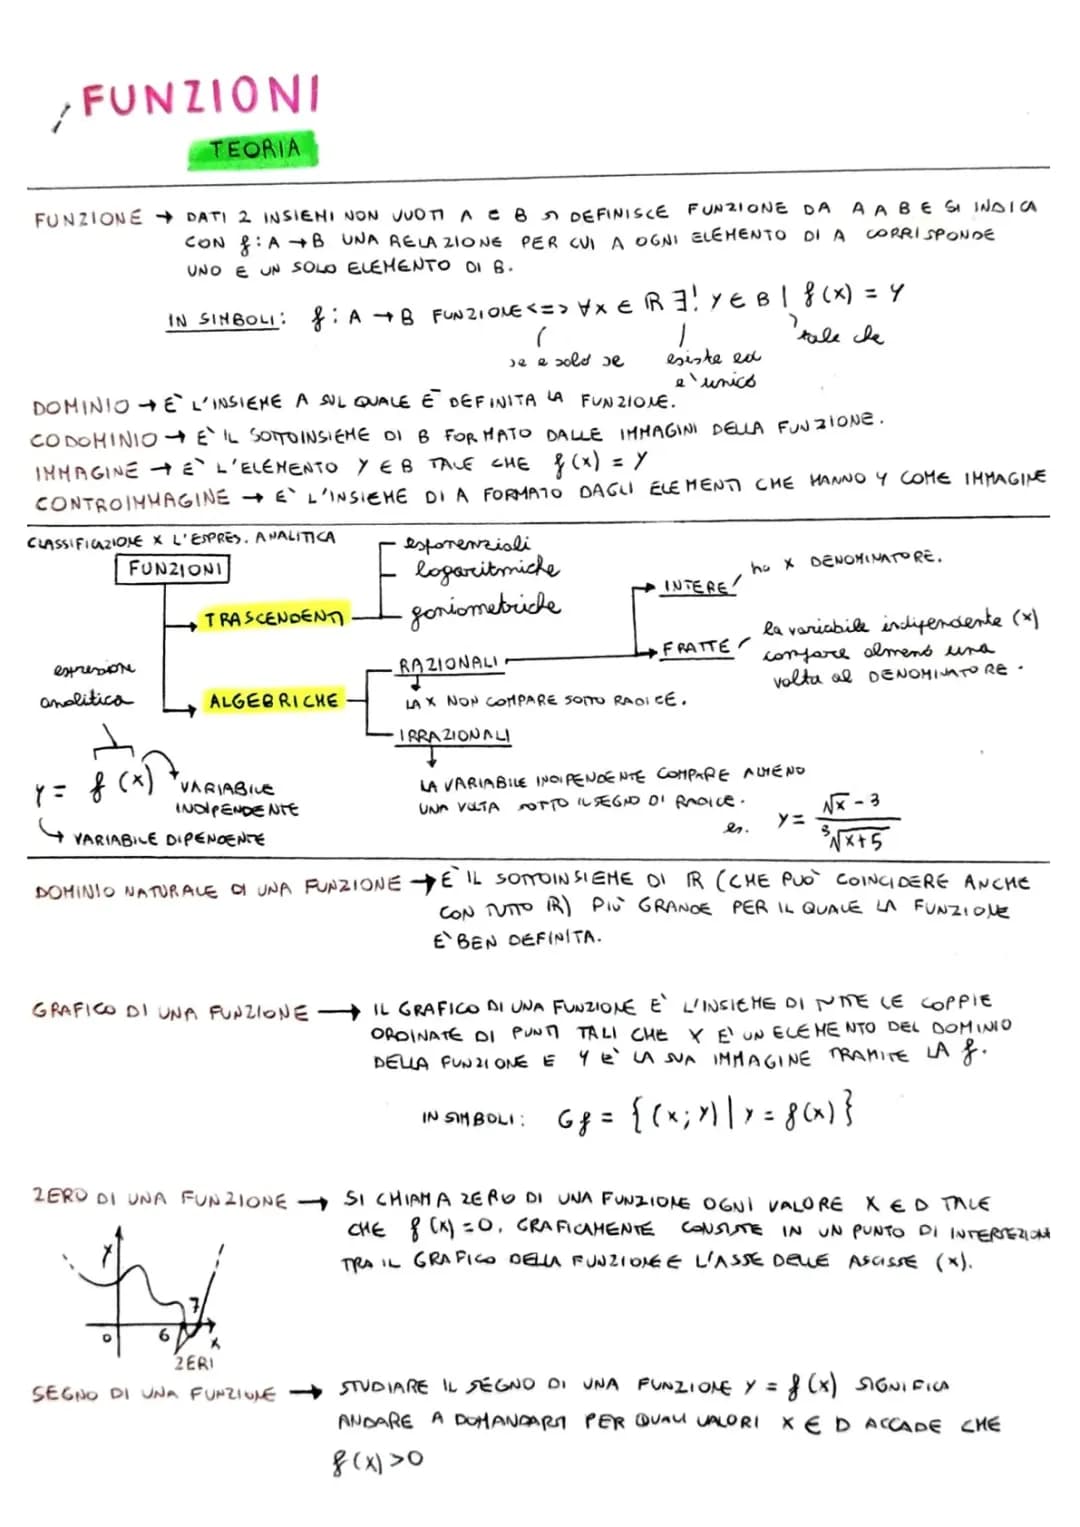 FUNZIONI
TEORIA
FUNZIONE → DATI 2 INSIEMI NON VUOTI A E B SI DEFINISCE FUNZIONE DA A A B E SI INDICA
CON f: A → B UNA RELAZIONE PER CUI A OGNI ELEMENTO DI A CORRISPONDE
UNO E UN SOLO ELEMENTO DI B.
IN SIMBOLI: f: A → B FUNZIONE <=> ∀x ∈ ℝ ∃! y ∈ B | f(x) = y
se e solo se esiste ed tale che
e' unico
DOMINIO → E' L'INSIEME A SUL QUALE E' DEFINITA LA FUNZIONE.
CODOMINIO → E' IL SOTTOINSIEME DI B FORMATO DALLE IMMAGINI DELLA FUNZIONE.
IMMAGINE → E' L'ELEMENTO Y ∈ B TALE CHE f(x) = y
CONTROIMMAGINE → E' L'INSIEME DI A FORMATO DAGLI ELEMENTI CHE HANNO Y COME IMMAGINE
CLASSIFICAZIONE X L'ESPRES. ANALITICA
FUNZIONI
esponenziali
logaritmiche
goniometriche
TRASCENDENTI
INTERE ha X DENOMINATORE.
FRATTE la variabile indipendente (x)
compare almeno una
volta al DENOMINATORE.
espressione
analitica
ALGEBRICHE
RAZIONALI
LA X NON COMPARE SOTTO RADICE.
IRRAZIONALI
LA VARIABILE INDIPENDENTE COMPARE ALMENO
UNA VOLTA SOTTO IL SEGNO DI RADICE.
es. y = √x - 3 / ³√x+5
y = f(x) VARIABILE
INDIPENDENTE
VARIABILE DIPENDENTE
DOMINIO NATURALE DI UNA FUNZIONE → E' IL SOTTOINSIEME DI ℝ (CHE PUO' COINCIDERE ANCHE
CON TUTTO ℝ) PIU' GRANDE PER IL QUALE LA FUNZIONE
E' BEN DEFINITA.
GRAFICO DI UNA FUNZIONE → IL GRAFICO DI UNA FUNZIONE E' L'INSIEME DI TUTTE LE COPPIE
ORDINATE DI PUNTI TALI CHE X E' UN ELEMENTO DEL DOMINIO
DELLA FUNZIONE E Y E' LA SUA IMMAGINE TRAMITE LA f.
IN SIMBOLI: Gf = {(x; y) | y = f(x)}
ZERO DI UNA FUNZIONE → SI CHIAMA ZERO DI UNA FUNZIONE OGNI VALORE X ∈ D TALE
CHE f(x) = 0. GRAFICAMENTE CONSISTE IN UN PUNTO DI INTERSEZIONE
TRA IL GRAFICO DELLA FUNZIONE E L'ASSE DELLE ASCISSE (X).
y
7
0 6 x
ZERI
SEGNO DI UNA FUNZIONE → STUDIARE IL SEGNO DI UNA FUNZIONE Y = f(x) SIGNIFICA
ANDARE A DOMANDARSI PER QUALI VALORI X ∈ D ACCADE CHE
f(x) > 0